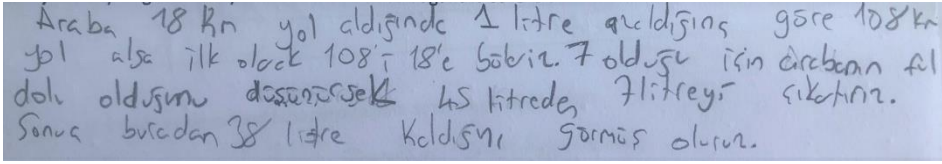 Araba 18 km yol aldığında 1 litre azaldığına göre 108 km
yol alsa ilk olarak 108'i 18'e böleriz. 7 olduğu için arabanın ful
dolu olduğunu düşünürsek 45 litreden 7 litreyi çıkartırız.
Sonuç buradan 38 litre kaldığını görmüş oluruz.